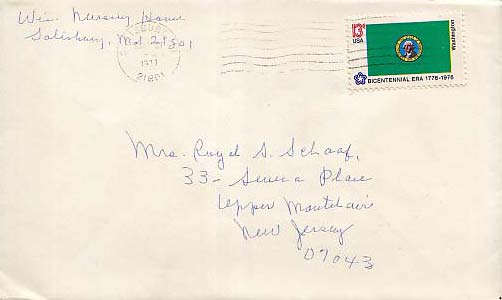 Wic. Nursing Home
Salisbury, Md. 21801
SALISBURY
1977
21801
13c
USA
Washington
BICENTENNIAL ERA 1776-1976
Mrs. Royal S. Schaaf,
33- Seneca Place
Upper Montclair
New Jersey
07043